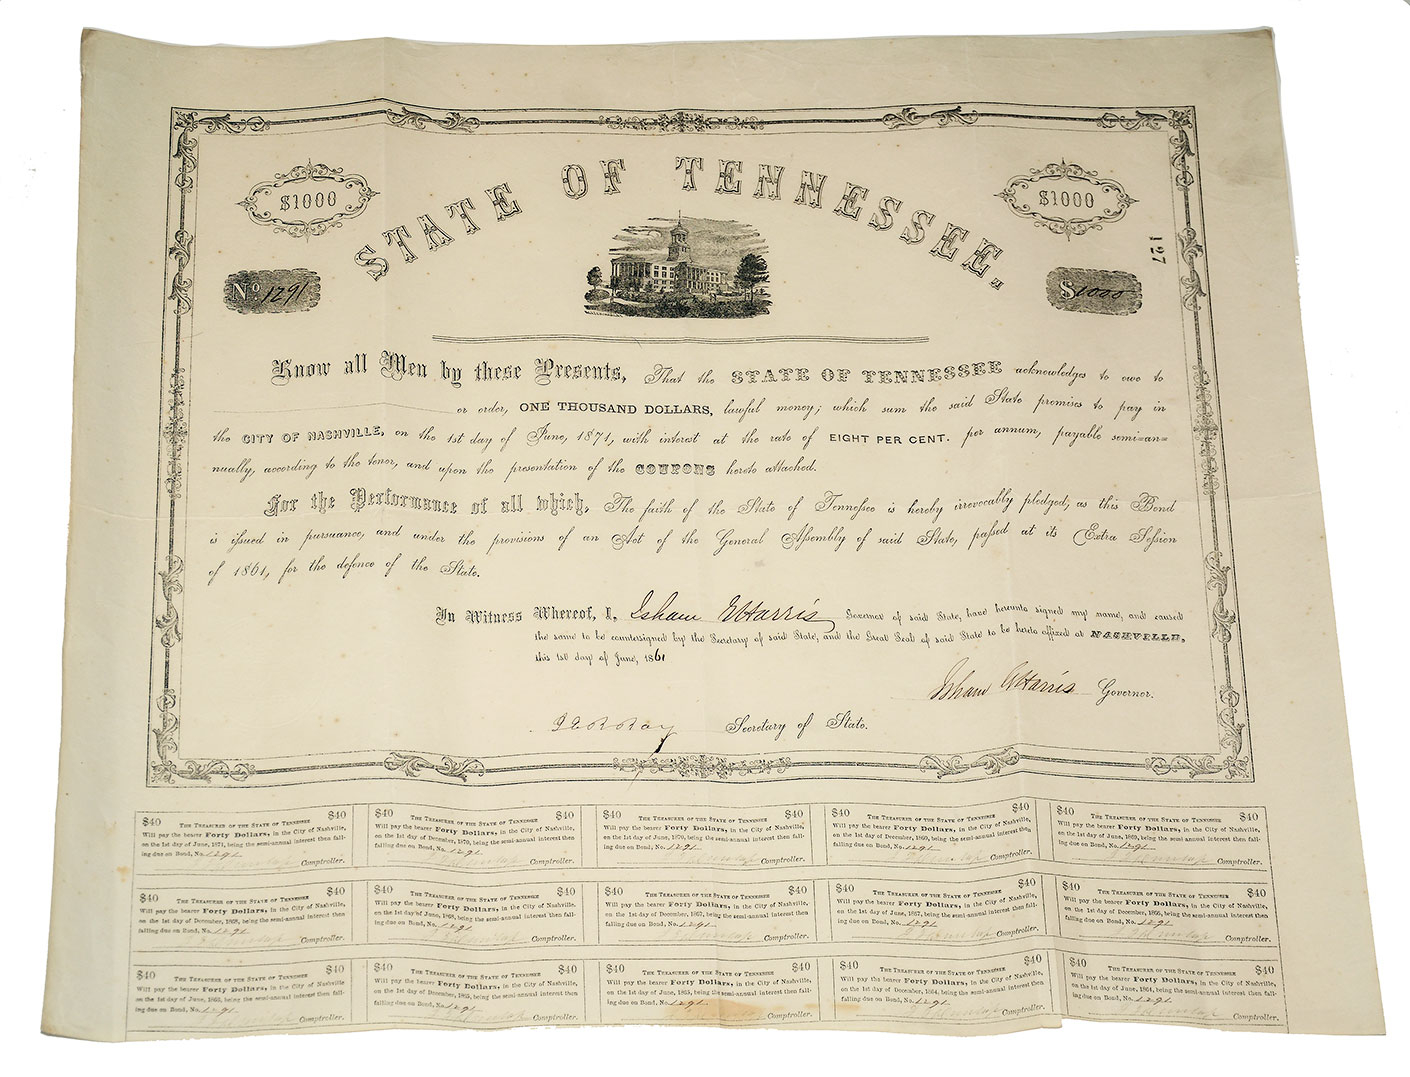 STATE OF TENNESSEE.
$1000
$1000
127
No. 1291
$1000
Know all Men by these Presents, That the STATE OF TENNESSEE acknowledges to owe to
or order, ONE THOUSAND DOLLARS, lawful money; which sum the said State promises to pay in
the CITY OF NASHVILLE, on the 1st day of June, 1871, with interest at the rate of EIGHT PER CENT. per annum, payable semi-an-
nually, according to the tenor, and upon the presentation of the COUPONS hereto attached.
For the Performance of all which, The faith of the State of Tennessee is hereby irrevocably pledged; as this Bond
is issued in pursuance, and under the provisions of an Act of the General Assembly of said State, passed at its Extra Session
of 1861, for the defence of the State.
In Witness Whereof, I, Isham G Harris Governor of said State, have hereunto signed my name, and caused
the same to be countersigned by the Secretary of said State, and the Great Seal of said State to be hereto affixed at NASHVILLE,
this 1st day of June, 1861
Isham G Harris Governor.
J E R Ray Secretary of State.
$40 THE TREASURER OF THE STATE OF TENNESSEE $40
Will pay the bearer Forty Dollars, in the City of Nashville,
on the 1st day of June, 1871, being the semi-annual interest then fall-
ing due on Bond, No. 1291
Comptroller.
$40 THE TREASURER OF THE STATE OF TENNESSEE $40
Will pay the bearer Forty Dollars, in the City of Nashville,
on the 1st day of December, 1870, being the semi-annual interest then
falling due on Bond, No. 1291
Comptroller.
$40 THE TREASURER OF THE STATE OF TENNESSEE $40
Will pay the bearer Forty Dollars, in the City of Nashville,
on the 1st day of June, 1870, being the semi-annual interest then fall-
ing due on Bond, No. 1291
Comptroller.
$40 THE TREASURER OF THE STATE OF TENNESSEE $40
Will pay the bearer Forty Dollars, in the City of Nashville,
on the 1st day of December, 1869, being the semi-annual interest then
falling due on Bond, No. 1291
Comptroller.
$40 THE TREASURER OF THE STATE OF TENNESSEE $40
Will pay the bearer Forty Dollars, in the City of Nashville,
on the 1st day of June, 1869, being the semi-annual interest then fall-
ing due on Bond, No. 1291
Comptroller.
$40 THE TREASURER OF THE STATE OF TENNESSEE $40
Will pay the bearer Forty Dollars, in the City of Nashville,
on the 1st day of December, 1868, being the semi-annual interest then
falling due on Bond, No. 1291
Comptroller.
$40 THE TREASURER OF THE STATE OF TENNESSEE $40
Will pay the bearer Forty Dollars, in the City of Nashville,
on the 1st day of June, 1868, being the semi-annual interest then
falling due on Bond, No. 1291
Comptroller.
$40 THE TREASURER OF THE STATE OF TENNESSEE $40
Will pay the bearer Forty Dollars, in the City of Nashville,
on the 1st day of December, 1867, being the semi-annual interest then
falling due on Bond, No. 1291
Comptroller.
$40 THE TREASURER OF THE STATE OF TENNESSEE $40
Will pay the bearer Forty Dollars, in the City of Nashville,
on the 1st day of June, 1867, being the semi-annual interest then
falling due on Bond, No. 1291
Comptroller.
$40 THE TREASURER OF THE STATE OF TENNESSEE $40
Will pay the bearer Forty Dollars, in the City of Nashville,
on the 1st day of December, 1866, being the semi-annual interest then
falling due on Bond, No. 1291
Comptroller.
$40 THE TREASURER OF THE STATE OF TENNESSEE $40
Will pay the bearer Forty Dollars, in the City of Nashville,
on the 1st day of June, 1866, being the semi-annual interest then fall-
ing due on Bond, No. 1291
Comptroller.
$40 THE TREASURER OF THE STATE OF TENNESSEE $40
Will pay the bearer Forty Dollars, in the City of Nashville,
on the 1st day of December, 1865, being the semi-annual interest then
falling due on Bond, No. 1291
Comptroller.
$40 THE TREASURER OF THE STATE OF TENNESSEE $40
Will pay the bearer Forty Dollars, in the City of Nashville,
on the 1st day of June, 1865, being the semi-annual interest then fall-
ing due on Bond, No. 1291
Comptroller.
$40 THE TREASURER OF THE STATE OF TENNESSEE $40
Will pay the bearer Forty Dollars, in the City of Nashville,
on the 1st day of December, 1864, being the semi-annual interest then
falling due on Bond, No. 1291
Comptroller.
$40 THE TREASURER OF THE STATE OF TENNESSEE $40
Will pay the bearer Forty Dollars, in the City of Nashville,
on the 1st day of June, 1864, being the semi-annual interest then fall-
ing due on Bond, No. 1291
Comptroller.